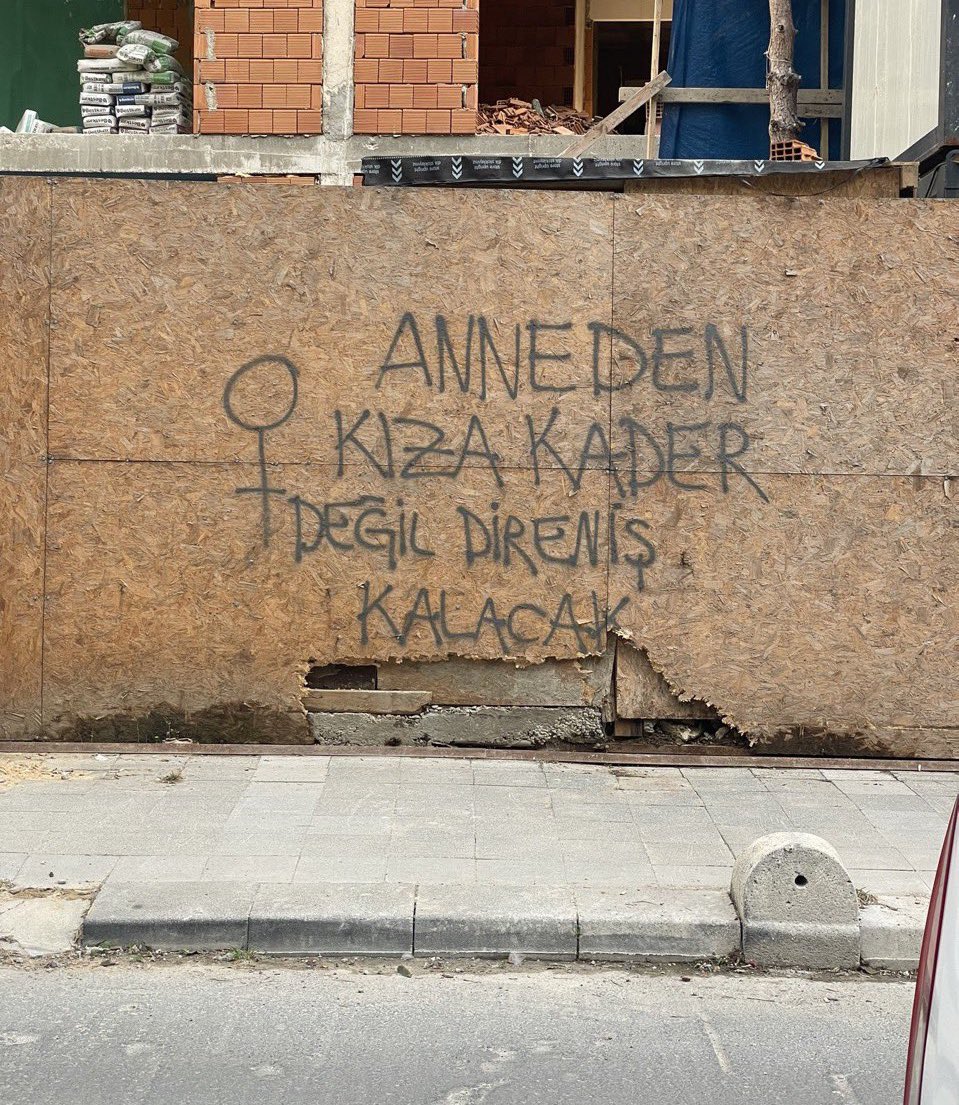 ANNEDEN
KIZA KADER
DEĞİL DİRENİŞ
KALACAK